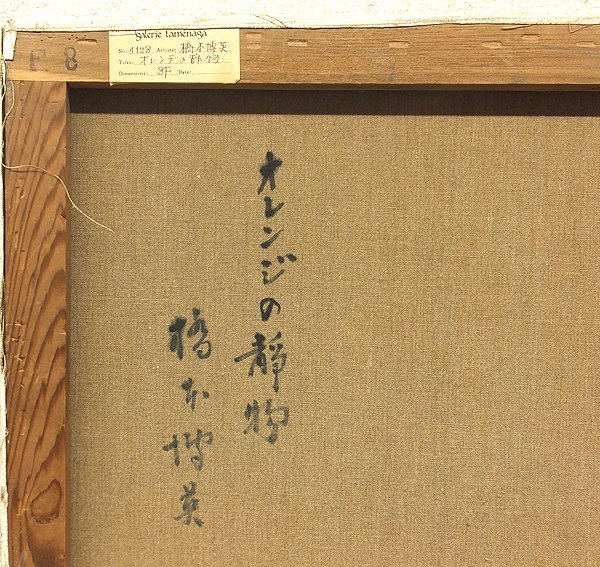 F 8
galerie tamenaga
No: 4128 Artiste: 橋本博英
Titre: オレンヂの静物
Dimensions: 8F Date:
オレンジの静物
橋本博英